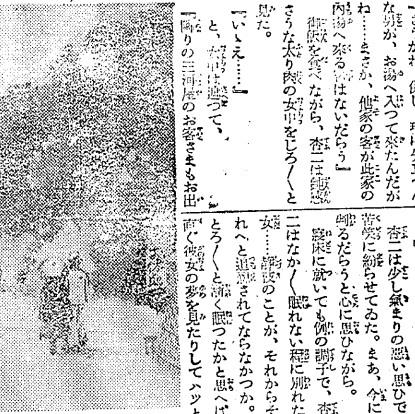 な男が、お湯へ入つて來たんだが
ね……まさか、他家の客が此家の
内湯へ來る筈はないだらう』
御飯を食べながら、杏二は
さうな太り肉の女中をじろ／＼と
見た。
『いゝえ……』
と、女中は遮つて、
『隣りの三河屋のお客さまもお出
杏二は少し氣まりの惡い思ひで
苦笑に紛らせてゐた。まあ、今に
判るだらうと心に思ひながら。
寢床に就いても例の調子で、杏
二はなか／＼眠れない程に別れた
女……のことが、それからそ
れへと追想されてならなかつた。
とろ／＼と淺く眠つたかと思へば
直ぐ彼女の夢を見たりしてハッと